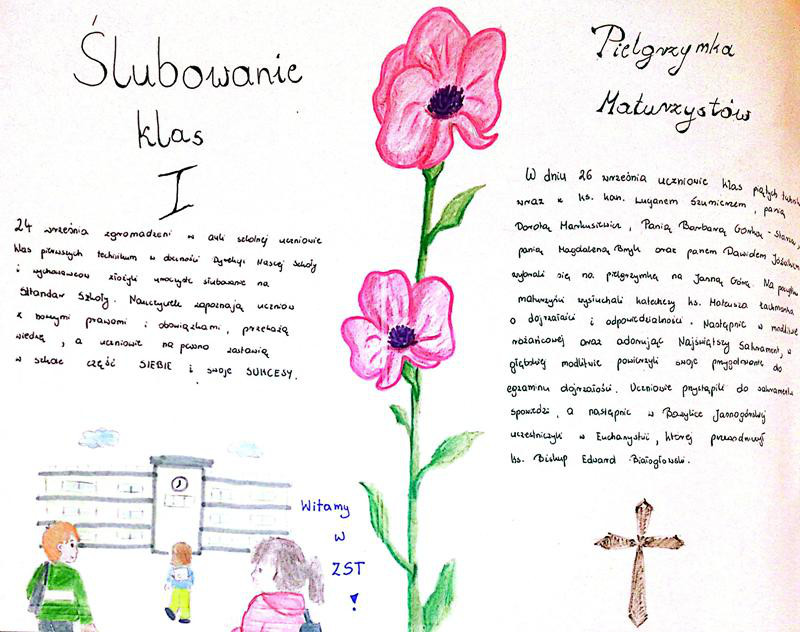 Ślubowanie
klas
I
24 września zgromadzeni w auli szkolnej uczniowie
klas pierwszych technikum w obecności Dyrekcji Naszej Szkoły
i wychowawców złożyli uroczyste ślubowanie na
Sztandar Szkoły. Nauczyciele zapoznają uczniów
z nowymi prawami i obowiązkami, przekażą
wiedzę, a uczniowie na pewno zostawią
w szkole CZĘŚĆ SIEBIE i swoje SUKCESY.
Witamy
w
ZST
!
Pielgrzymka
Maturzystów
W dniu 26 września uczniowie klas piątych
wraz z ks. kan. Lucjanem Szumierzem, panią
Dorotą Markusiewicz, Panią Barbarą Gońka -
panią Magdaleną Bryk oraz panem Dawidem
wybrali się na pielgrzymkę na Jasną Górę. Na
maturzyści wysłuchali katechezy ks. Mateusza
o dojrzałości i odpowiedzialności. Następnie w modlitwie
różańcowej oraz adorując Najświętszy Sakrament, w
głębokiej modlitwie powierzyli swoje przygotowanie do
egzaminu dojrzałości. Uczniowie przystąpili do sakramentu
spowiedzi, a następnie w Bazylice Jasnogórskiej
uczestniczyli w Eucharystii, której przewodniczył
ks. Biskup Edward Białogłowski.